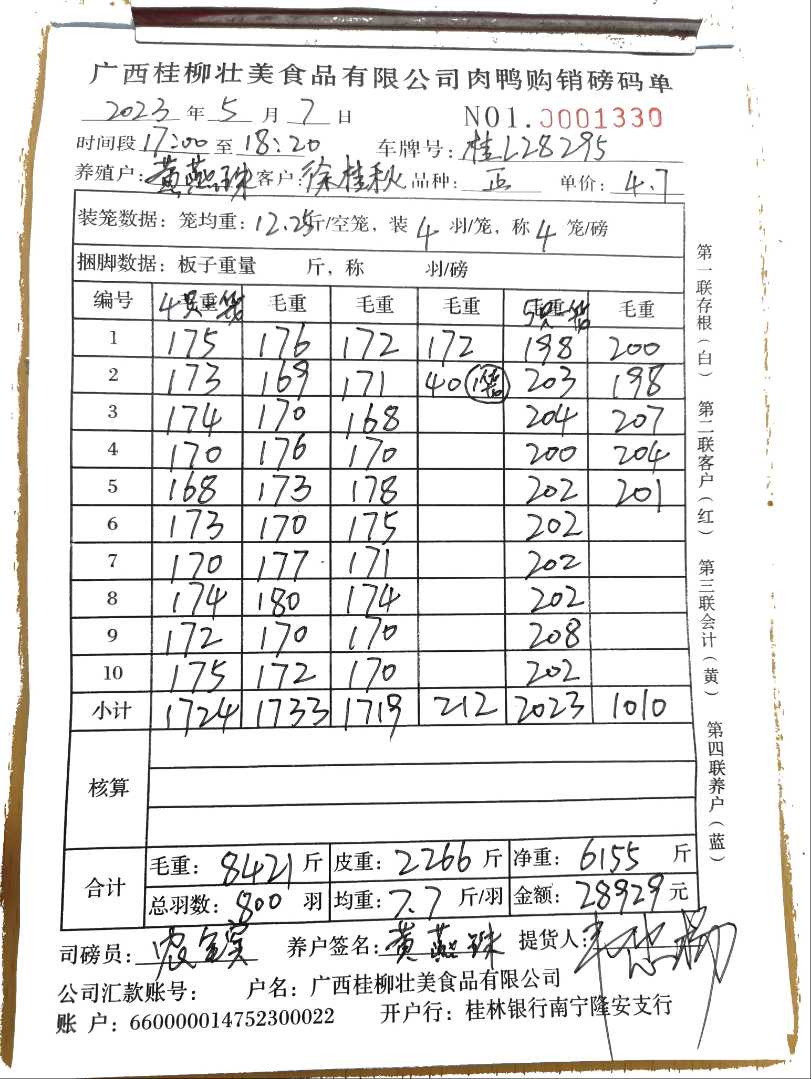 广西桂柳壮美食品有限公司肉鸭购销磅码单
2023 年 5 月 7 日 NO1.0001330
时间段 17:00 至 18:20 车牌号: 桂L28295
养殖户: 黄燕珠 客户: 徐桂秋 品种: 正 单价: 4.7
装笼数据: 笼均重: 12.25 斤/空笼, 装 4 羽/笼, 称 4 笼/磅
捆脚数据: 板子重量 斤, 称 羽/磅
编号 4只 毛重 毛重 毛重 毛重 5只 毛重 毛重
1 175 176 172 172 198 200
2 173 169 171 40 203 198
3 174 170 168 204 207
4 170 176 170 200 204
5 168 173 178 202 201
6 173 170 175 202
7 170 177 171 202
8 174 180 174 202
9 172 170 170 208
10 175 172 170 202
小计 1724 1733 1719 212 2023 1010
核算
合计
毛重: 8421 斤 皮重: 2266 斤 净重: 6155 斤
总羽数: 800 羽 均重: 7.7 斤/羽 金额: 28929 元
司磅员: 养户签名: 黄燕珠 提货人:
公司汇款账号: 户名: 广西桂柳壮美食品有限公司
账 户: 660000014752300022 开户行: 桂林银行南宁隆安支行
第一联存根(白) 第二联客户(红) 第三联会计(黄) 第四联养户(蓝)